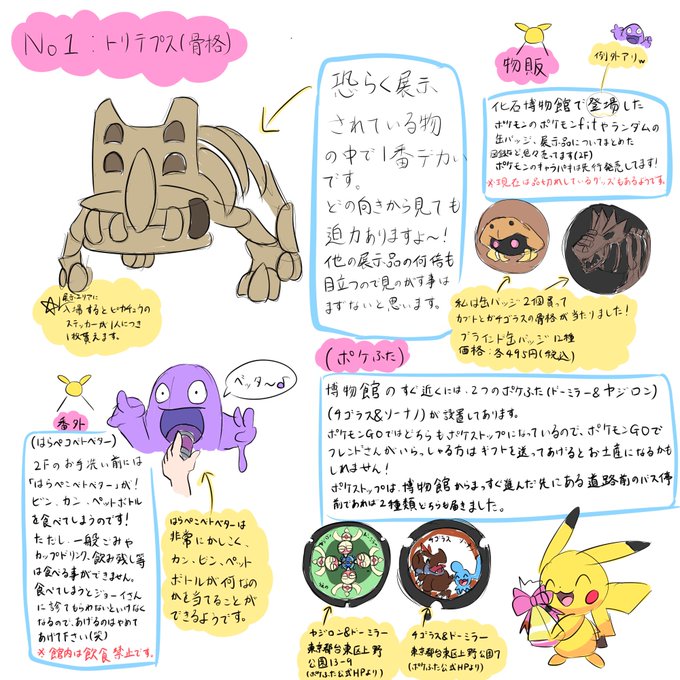 No1：トリデプス(骨格)
恐らく展示
されている物
の中で1番デカい
です。
どの向きから見ても
迫力ありますよ〜！
他の展示品の何倍も
目立つので見のがす事は
まずないと思います。
展示エリアに
入場するとピカチュウの
ステッカーが1人につき
1枚貰えます。
物販
例外アリw
化石博物館で登場した
ポケモンのポケモンfitやランダムの
缶バッジ、展示品についてまとめた
図録など色々売ってます(2F)
ポケモンのキャラパキは先行発売してます！
※現在は品切れしているグッズもあるようです。
私は缶バッジ2個買って
カブトとガチゴラスの骨格が当たりました！
ブラインド缶バッジ12種
価格：各495円(税込)
番外
(はらペコベトベター)
2Fのお手洗い前には
「はらぺこベトベター」が！
ビン、カン、ペットボトル
を食べてしまうのです！
ただし、一般ごみや
カップドリンク、飲み残し等
は食べる事ができません。
食べてしまうとジョーイさん
に診てもらわないといけなく
なるので、あげるのはやめて
あげて下さい(笑)
※館内は飲食禁止です。
ベッタ〜♪
はらぺこベトベターは
非常にかしこく、
カン、ビン、ペット
ボトルが何なの
かを当てることが
できるようです。
(ポケふた)
博物館のすぐ近くには、2つのポケふた(ドーミラー&ヤジロン)
(チゴラス&ソーナノ)が設置してあります。
ポケモンGOではどちらもポケストップになっているので、ポケモンGOで
フレンドさんがいらっしゃる方はギフトを送ってあげるとお土産になるかも
しれません！
ポケストップは、博物館からまっすぐ進んだ先にある道路前のバス停
前であれば2種類どちらも届きました。
ヤジロン
チゴラス
ヤジロン&ドーミラー
東京都台東区上野
公園13-9
(ポケふた公式HPより)
チゴラス&ドーミラー
東京都台東区上野公園7
(ポケふた公式HPより)